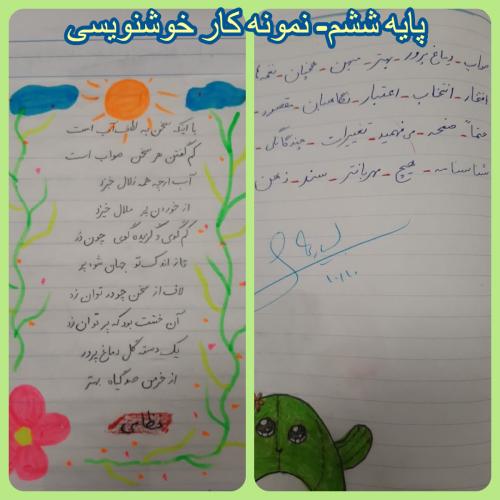 پایه ششم- نمونه کار خوشنویسی
با اینکه سخن به لطف آب است
کم گفتن هر سخن صواب است
آب ارچه همه زلال خیزد
از خوردن پر ملال خیزد
کم گوی و گزیده گوی چون دُر
تا ز اندک تو جهان شود پر
لاف از سخن چو در توان زد
آن خشت بود که پر توان زد
یک دسته گل دماغ پرور
از خرمن صد گیاه بهتر
نظامی
صواب - دماغ پرور - بهتر - میهن - همچنان - نغمه‌ها
افتخار - انتخاب - اعتبار - نگاهبان - مقصود -
حتماً - صفحه - می‌فهمید - تغییرات - چندگانگی -
شناسنامه - هیچ - مهربانتر - سند - ذهن